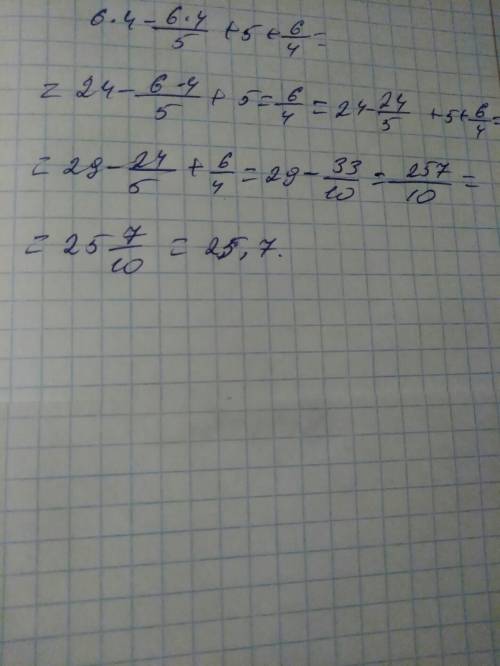 6·4 - 6·4/5 + 5 + 6/4 =
= 24 - 6·4/5 + 5 = 6/4 = 24 - 24/5 + 5 + 6/4 =
= 29 - 24/5 + 6/4 = 29 - 33/10 = 257/10 =
= 25 7/10 = 25,7.